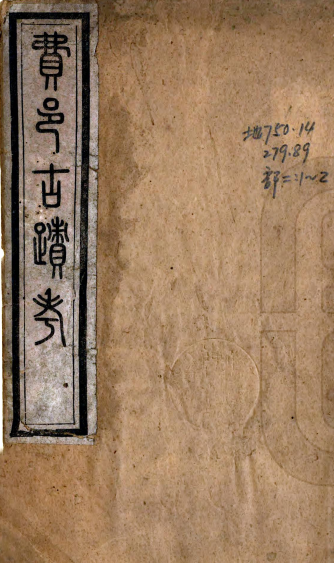 費邑古蹟考
地750.14
279.89
部二:1~2